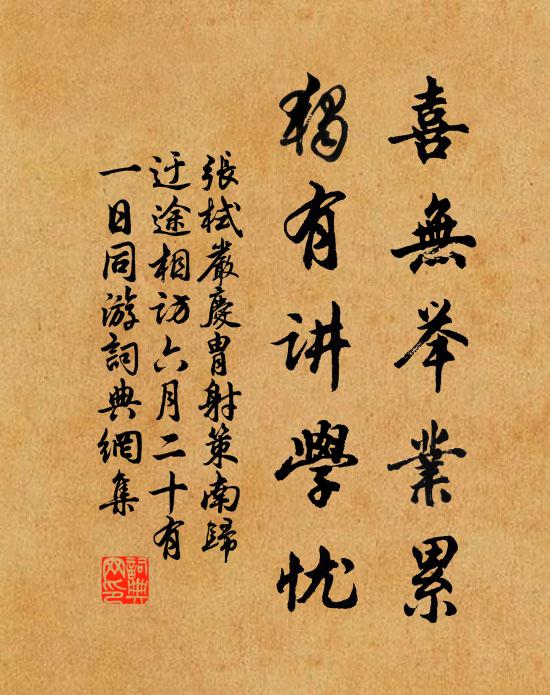 喜無举業累
獨有讲學忧
張栻嚴慶胄射策南歸
迂途相访六月二十有
一日同游詞典網集
詞典
网印